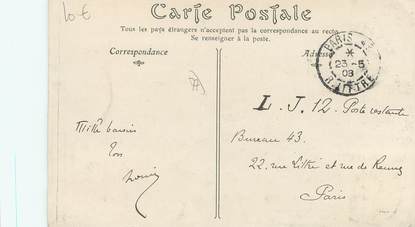 10 €
Carte Postale
Tous les pays étrangers n'acceptent pas la correspondance au recto.
Se renseigner à la poste.
Correspondance
Adresse
PARIS
*
23-5
08
R. LITTRÉ
L. J. 12. Poste restante
Bureau 43.
22, rue Littré et rue de Rennes
Paris
Mille baisers
Ton
Louis